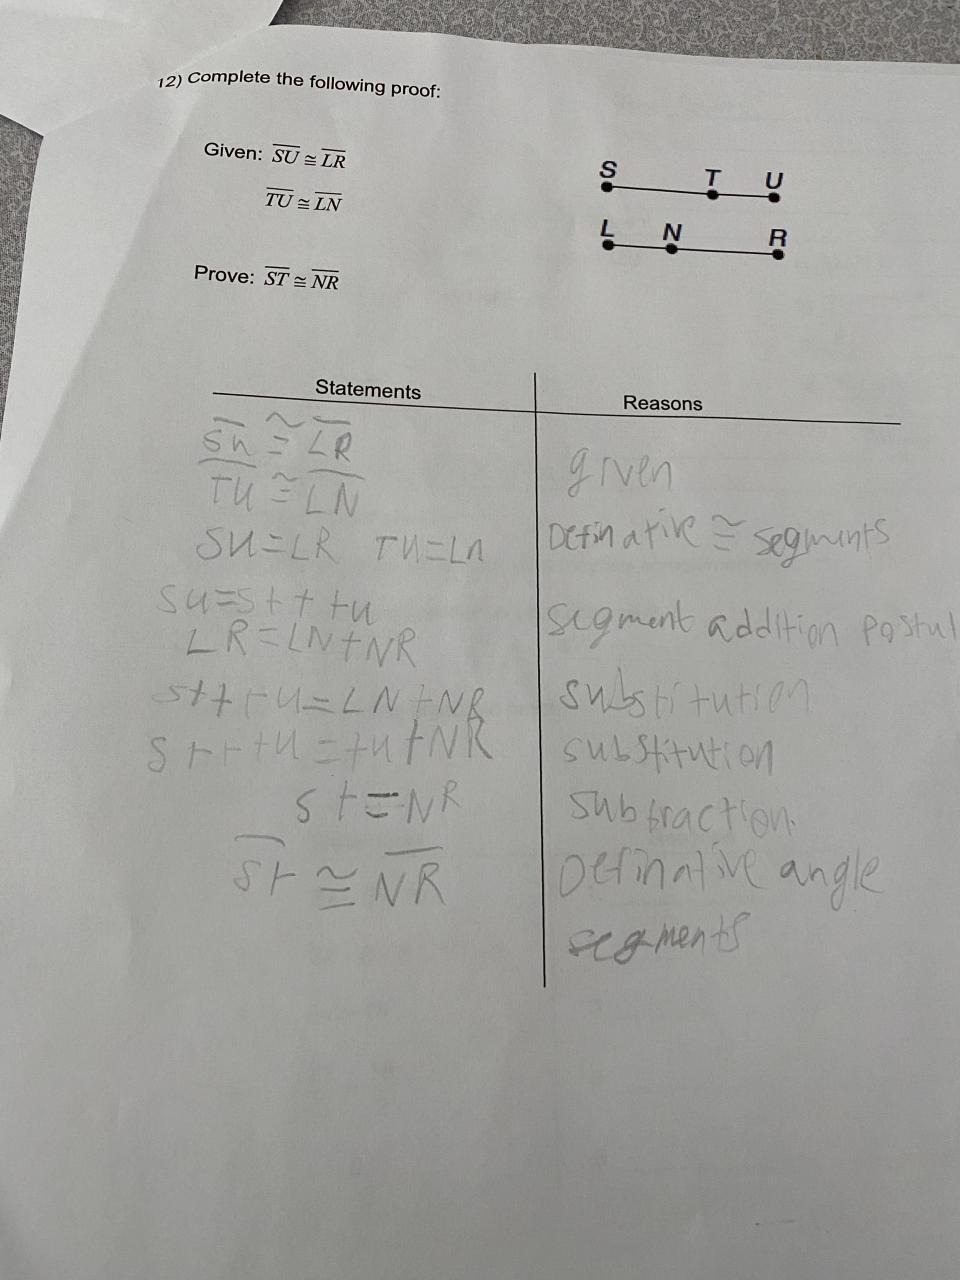 12) Complete the following proof:
Given: SU ≅ LR
TU ≅ LN
Prove: ST ≅ NR
S T U
L N R
Statements Reasons
Su ≅ LR
TU ≅ LN given
SU=LR TU=Ln Definative ≅ segments
Su=St + tu
LR=LN+NR segment addition postul
St+tu=LN+NR substitution
St+tu=tu+NR substitution
St=NR subtraction.
St ≅ NR Definative angle
segments